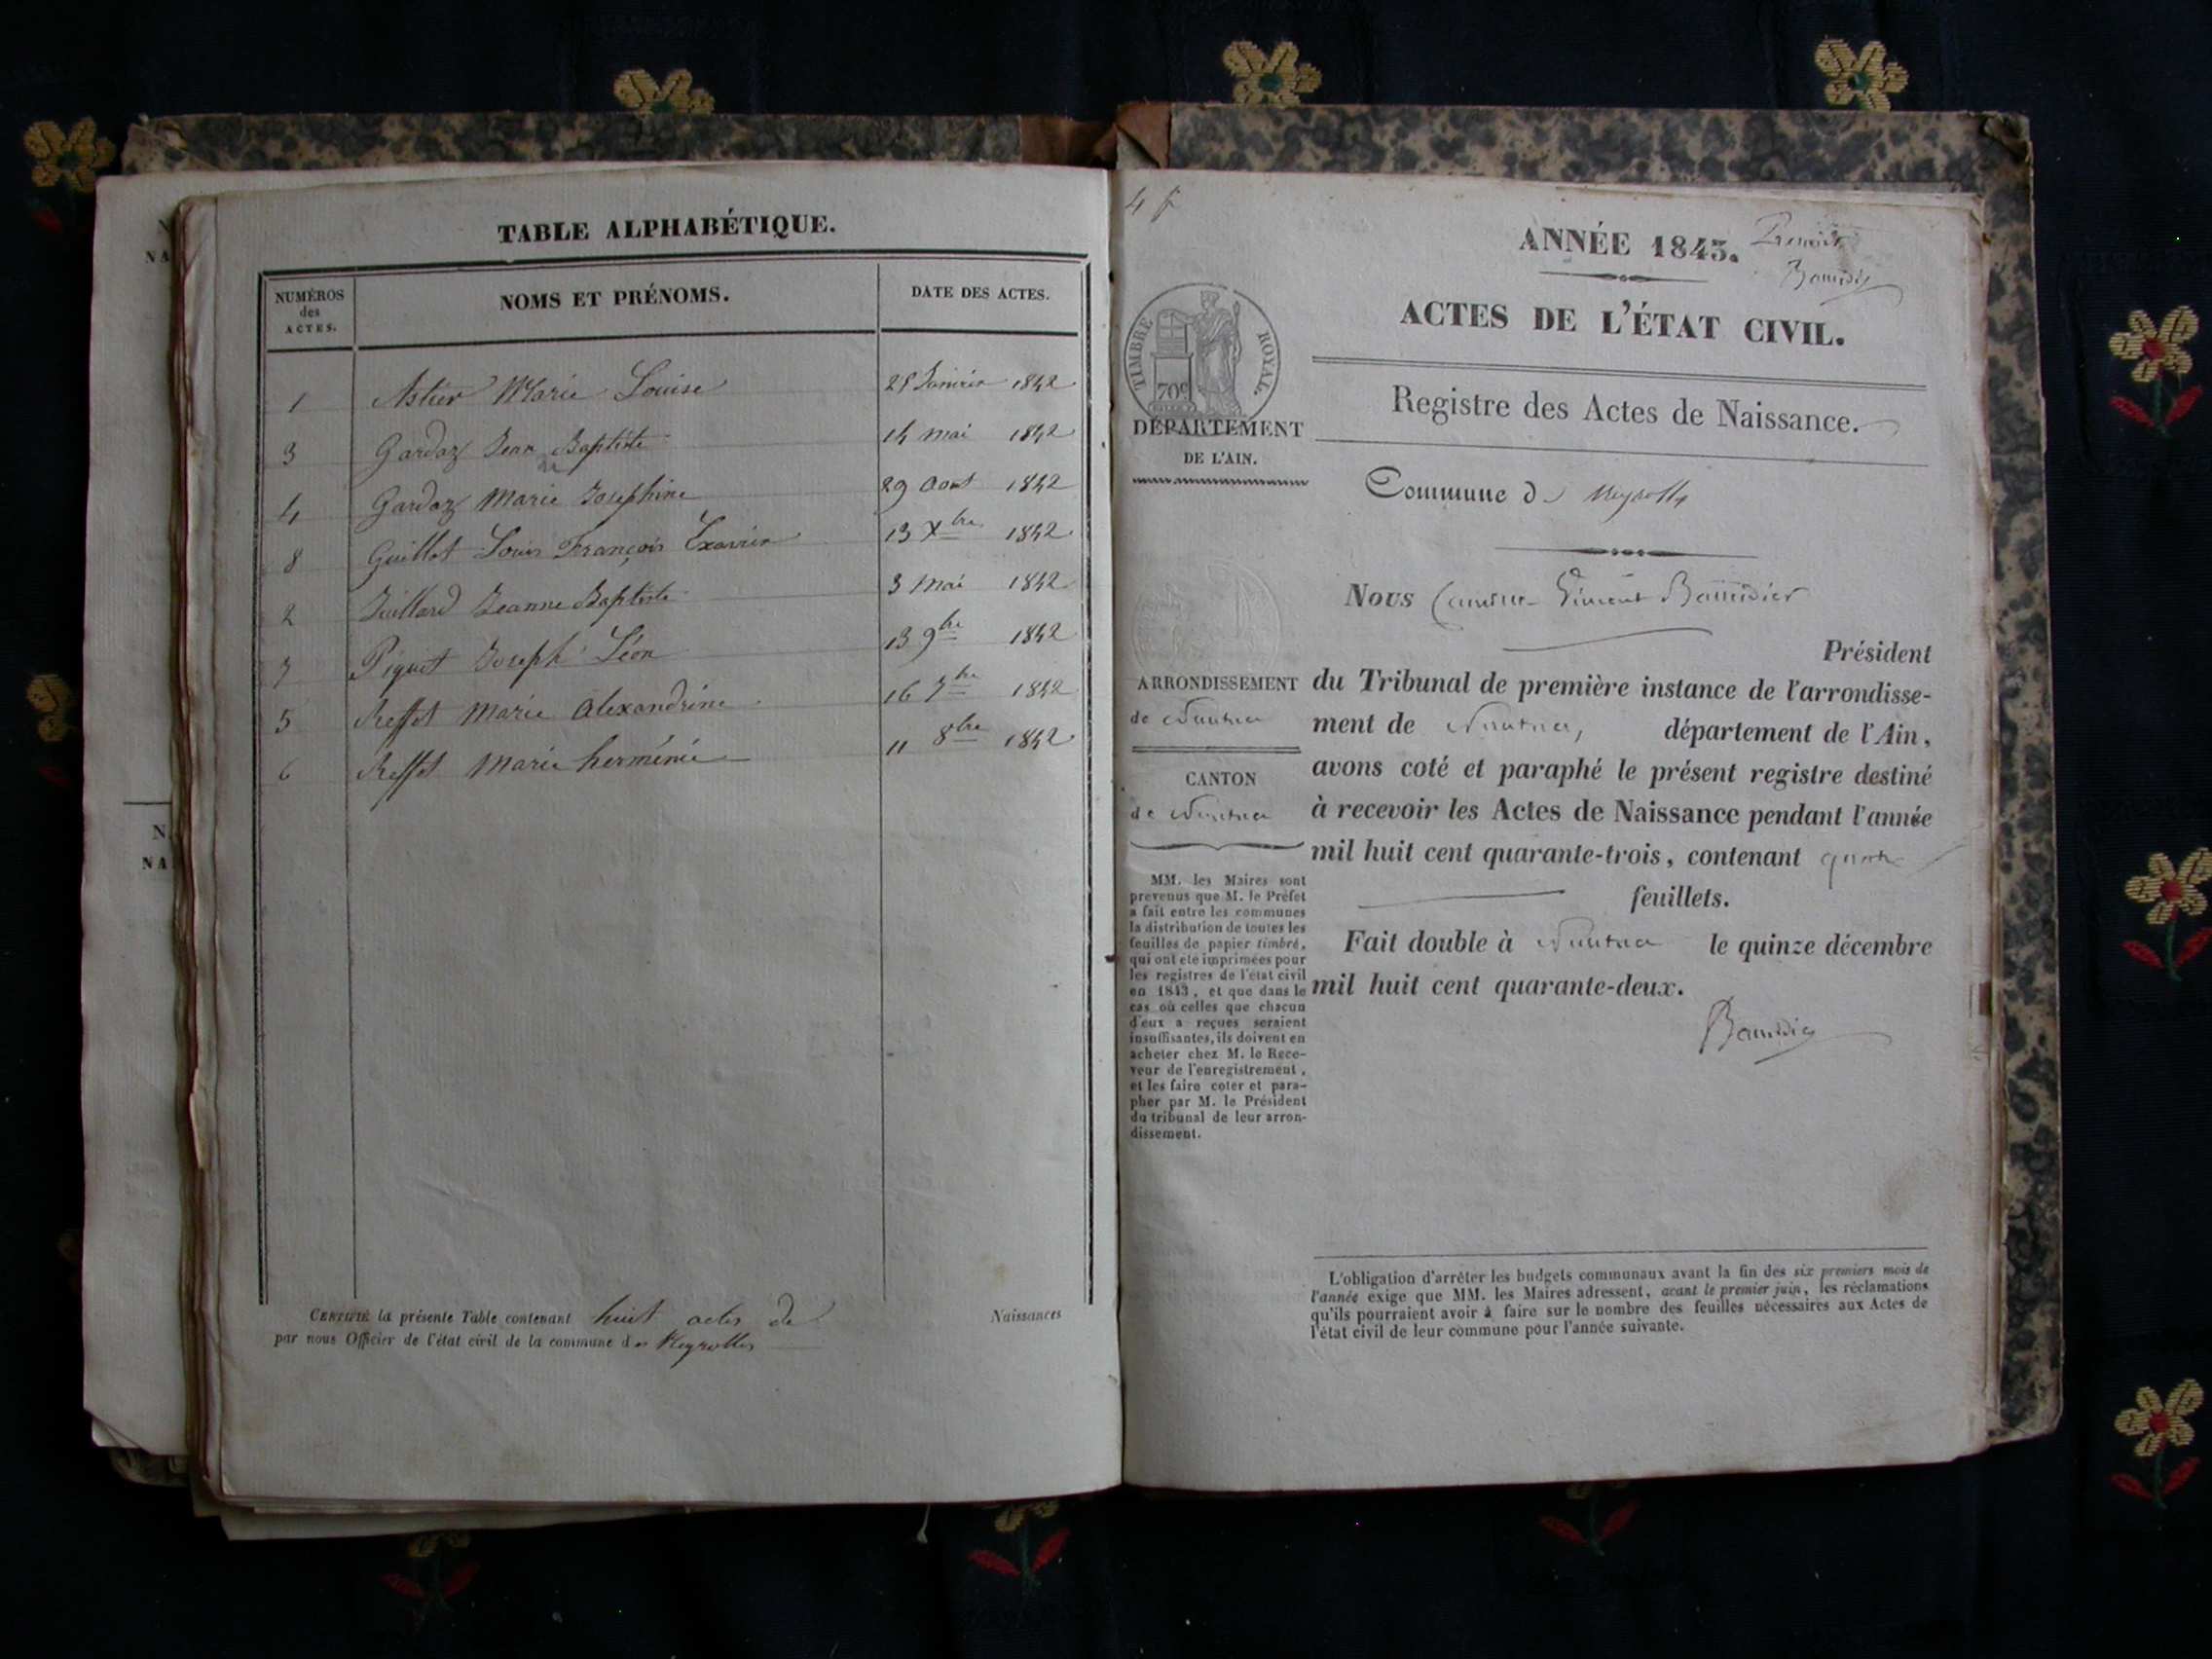 TABLE ALPHABÉTIQUE.
NUMÉROS
des
ACTES.
NOMS ET PRÉNOMS.
DATE DES ACTES.
1 Astier Marie Louise 1842
3 Gardaz Jean Baptiste 14 mai 1842
4 Gardaz Marie Josephine 29 Aout 1842
8 Guillot Louis François Exavier 13 Xbre 1842
2 Juillard Jeanne Baptiste 3 mai 1842
7 Piquet Joseph Léon 13 9bre 1842
5 Reffet Marie Alexandrine 16 7bre 1842
6 Reffet Marie herménie 11 8bre 1842
CERTIFIÉ la présente Table contenant huit actes de Naissances
par nous Officier de l'état civil de la commune de Neyrolles
4 f
ANNÉE 1843.
ACTES DE L'ÉTAT CIVIL.
Registre des Actes de Naissance.
Commune de Neyrolles
Nous Vincent Baudier
Président
du Tribunal de première instance de l'arrondisse-
ment de Nantua, département de l'Ain,
avons coté et paraphé le présent registre destiné
à recevoir les Actes de Naissance pendant l'année
mil huit cent quarante-trois, contenant quatre
feuillets.
Fait double à Nantua le quinze décembre
mil huit cent quarante-deux.
TIMBRE ROYAL.
70c
DÉPARTEMENT
DE L'AIN.
ARRONDISSEMENT
de Nantua
CANTON
de Nantua
MM. les Maires sont
prévenus que M. le Préfet
a fait entre les communes
la distribution de toutes les
feuilles de papier timbré,
qui ont été imprimées pour
les registres de l'état civil
en 1843, et que dans le
cas où celles que chacun
d'eux a reçues seraient
insuffisantes, ils doivent en
acheter chez M. le Rece-
veur de l'enregistrement,
et les faire coter et para-
pher par M. le Président
du tribunal de leur arron-
dissement.
L'obligation d'arrêter les budgets communaux avant la fin des six premiers mois de
l'année exige que MM. les Maires adressent, avant le premier juin, les réclamations
qu'ils pourraient avoir à faire sur le nombre des feuilles nécessaires aux Actes de
l'état civil de leur commune pour l'année suivante.